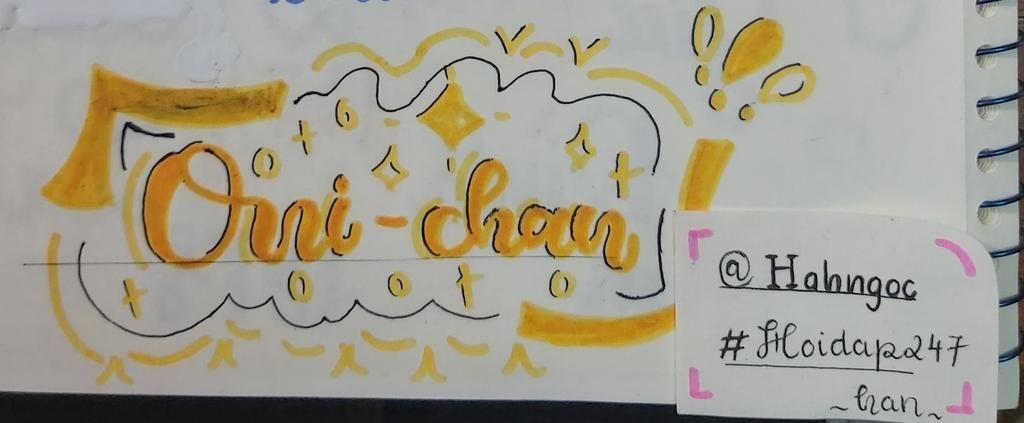 Orni-chan
@Hahngoc
#Hoidap247
~han~